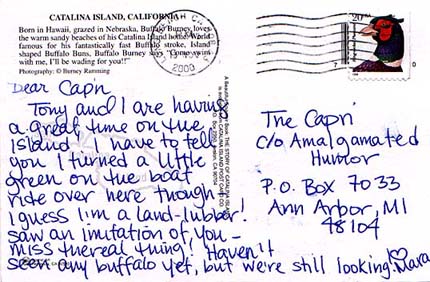 CATALINA ISLAND, CALIFORNIA
Born in Hawaii, grazed in Nebraska, Buffalo Burney loves
the warm sandy beaches of his Catalina Island home. World
famous for his fantastically fast Buffalo stroke, Island
shaped Buffalo Buns, Buffalo Burney says "Come swim
with me, I'll be wading for you!!"
Photography: © Burney Ramming
Dear Capri
Tony and I are having
a great time on the
island. I have to tell
you I turned a little
green on the boat
ride over here though -
I guess I'm a land-lubber!
Saw an imitation of you -
miss the real thing! Haven't
seen any buffalo yet, but we're still looking. ♡ Mara
THE STORY OF CATALINA
CATALINA ISLAND POST CARD CO.
2000
20
The Capri
c/o Amalgamated
Humor
P.O. Box 7033
Ann Arbor, MI
48104